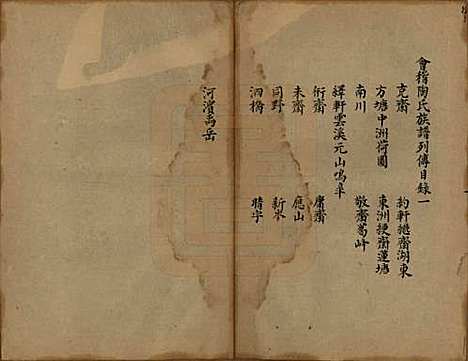 會稽陶氏族譜列傳目錄一
克齋 約軒 樾齋 湖東
方塘 中洲 荷園 東洲 梗齋 蓮塘
南川 敬齋 葛峰
繹軒 雲溪 元山 鳴阜
術齋 庸齋
未齋 應山
同野 新水
泗橋 晴宇
河濱 禹岳